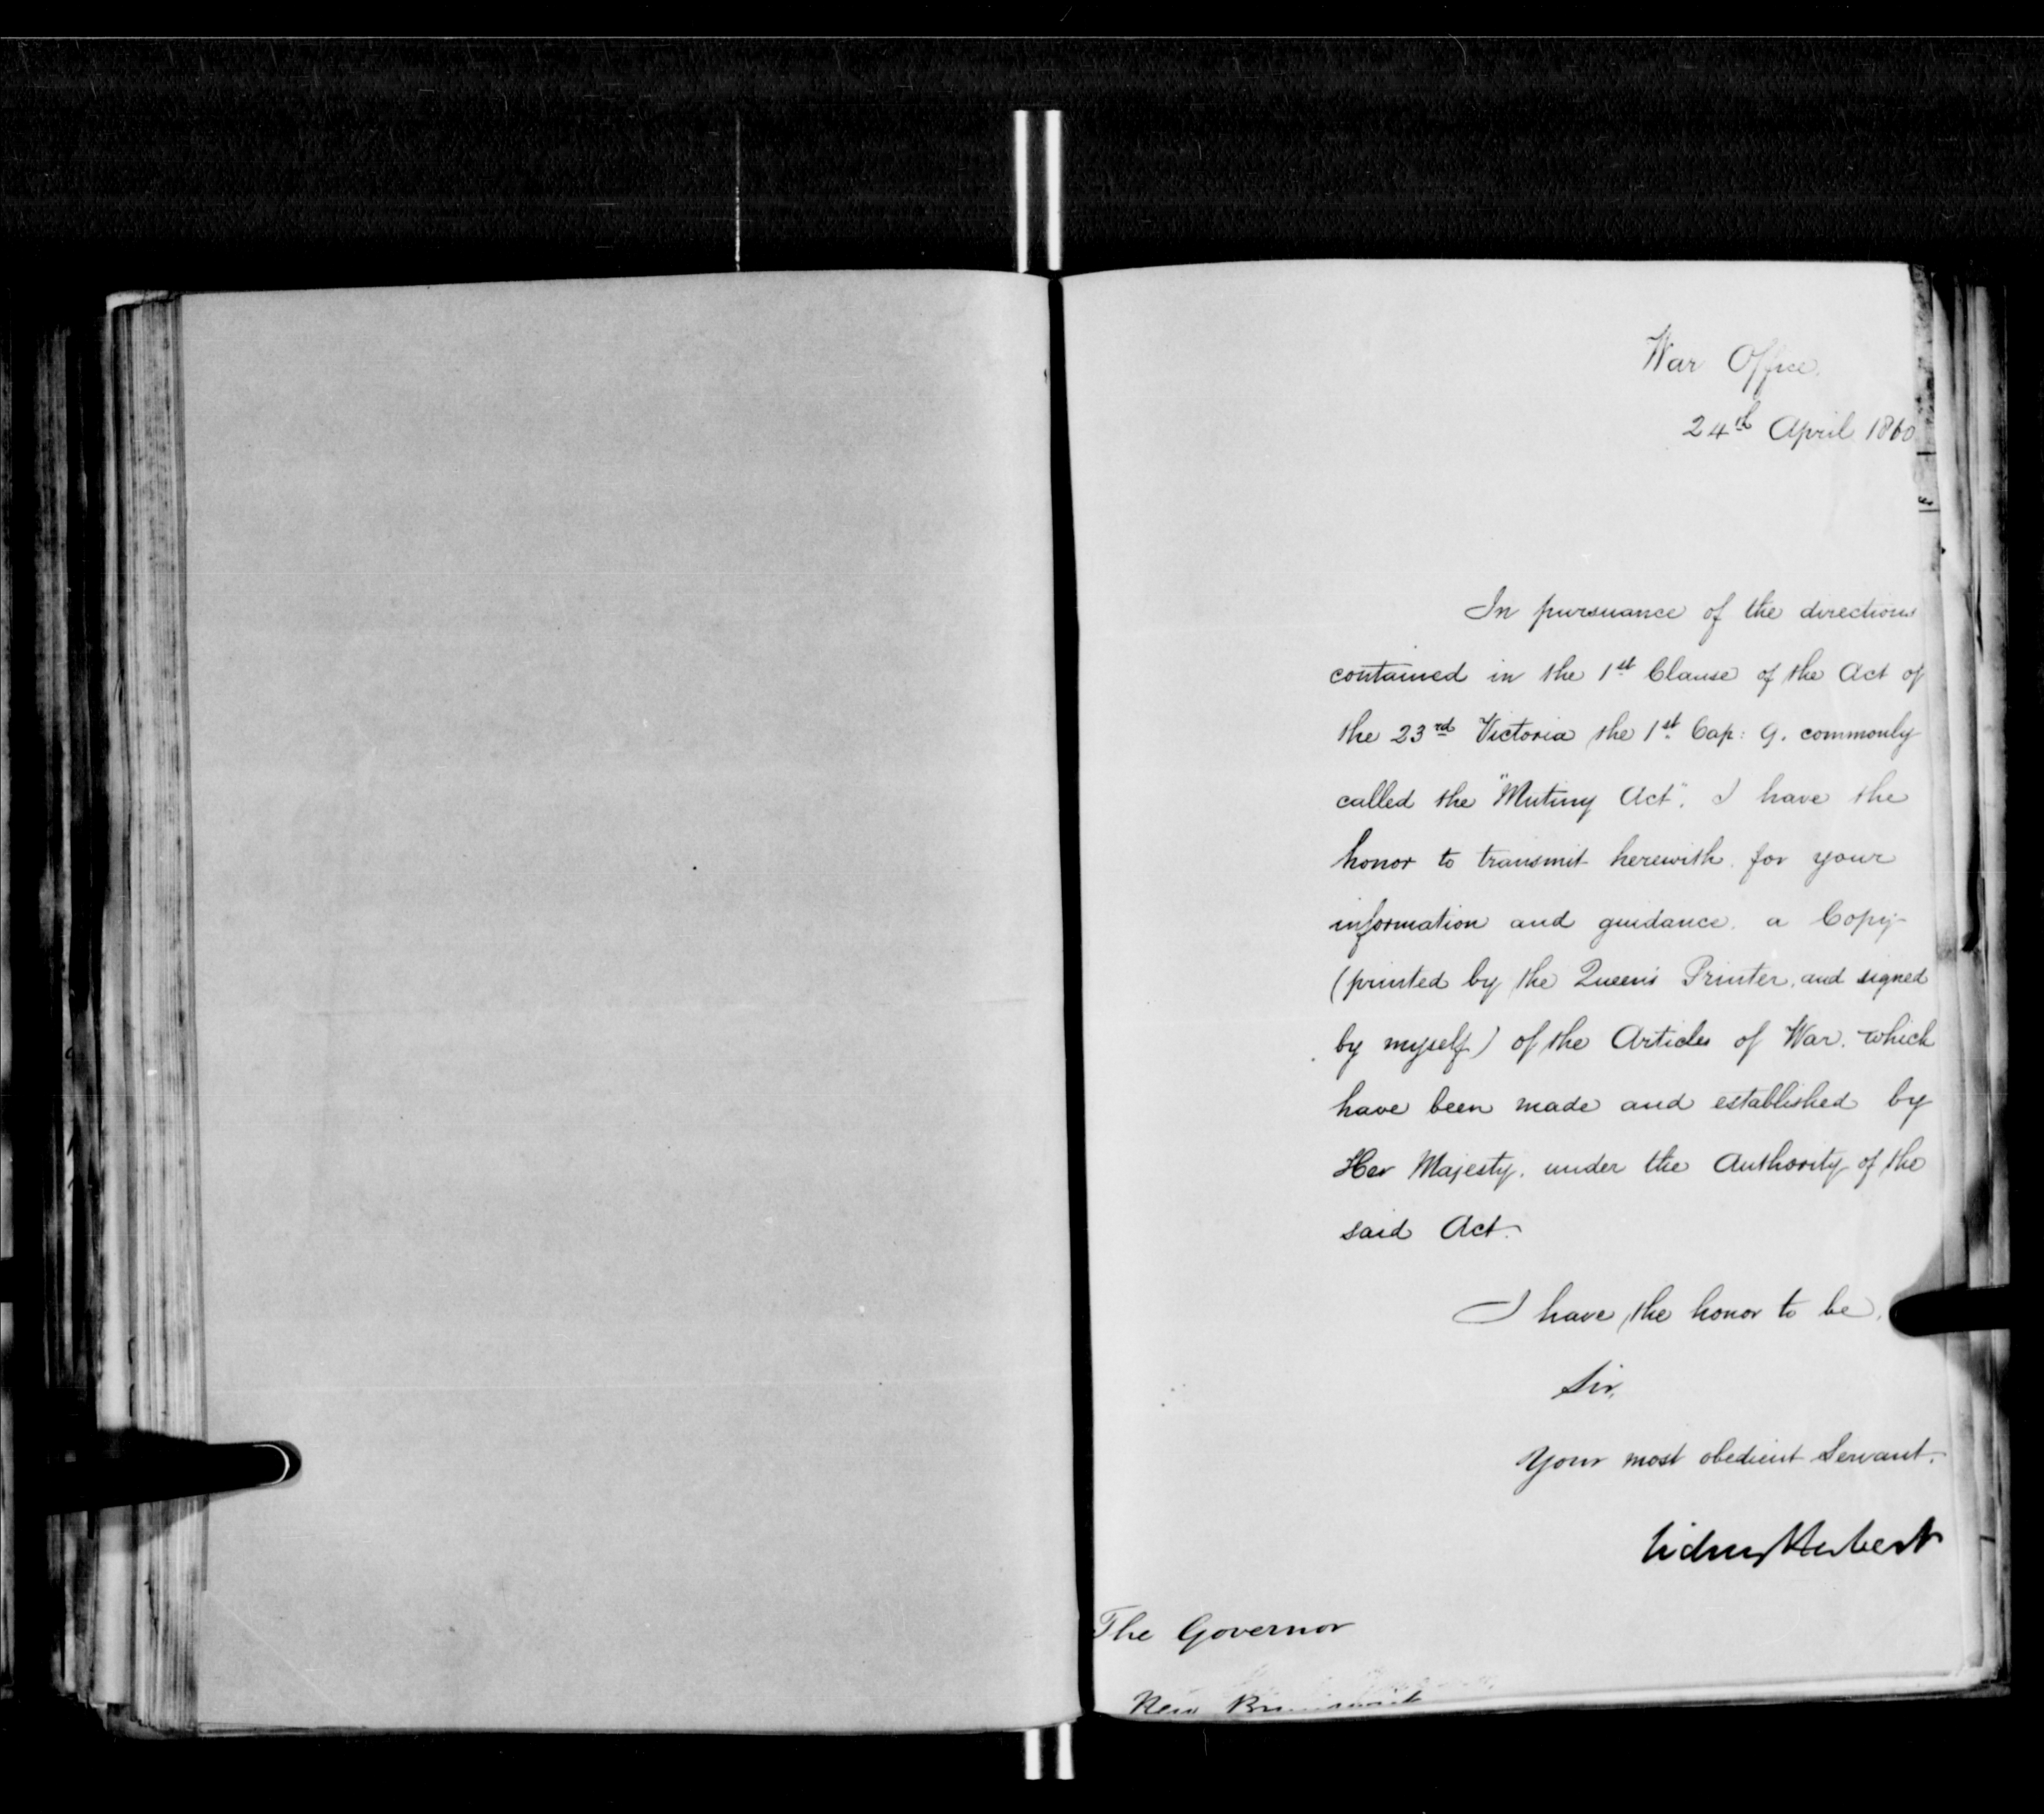 War Office.
24th April 1860
In pursuance of the directions
contained in the 1st Clause of the Act of
the 23rd Victoria the 1st Cap: 9. commonly
called the "Mutiny Act". I have the
honor to transmit herewith for your
information and guidance. a Copy
(printed by the Queen's Printer, and signed
by myself) of the Articles of War. which
have been made and established by
Her Majesty. under the Authority of the
said Act.
I have the honor to be,
Sir,
Your most obedient Servant.
Sidney Herbert
The Governor
New Brunswick